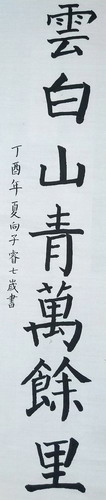 雲白山青萬餘里
丁酉年夏向子睿七歲書